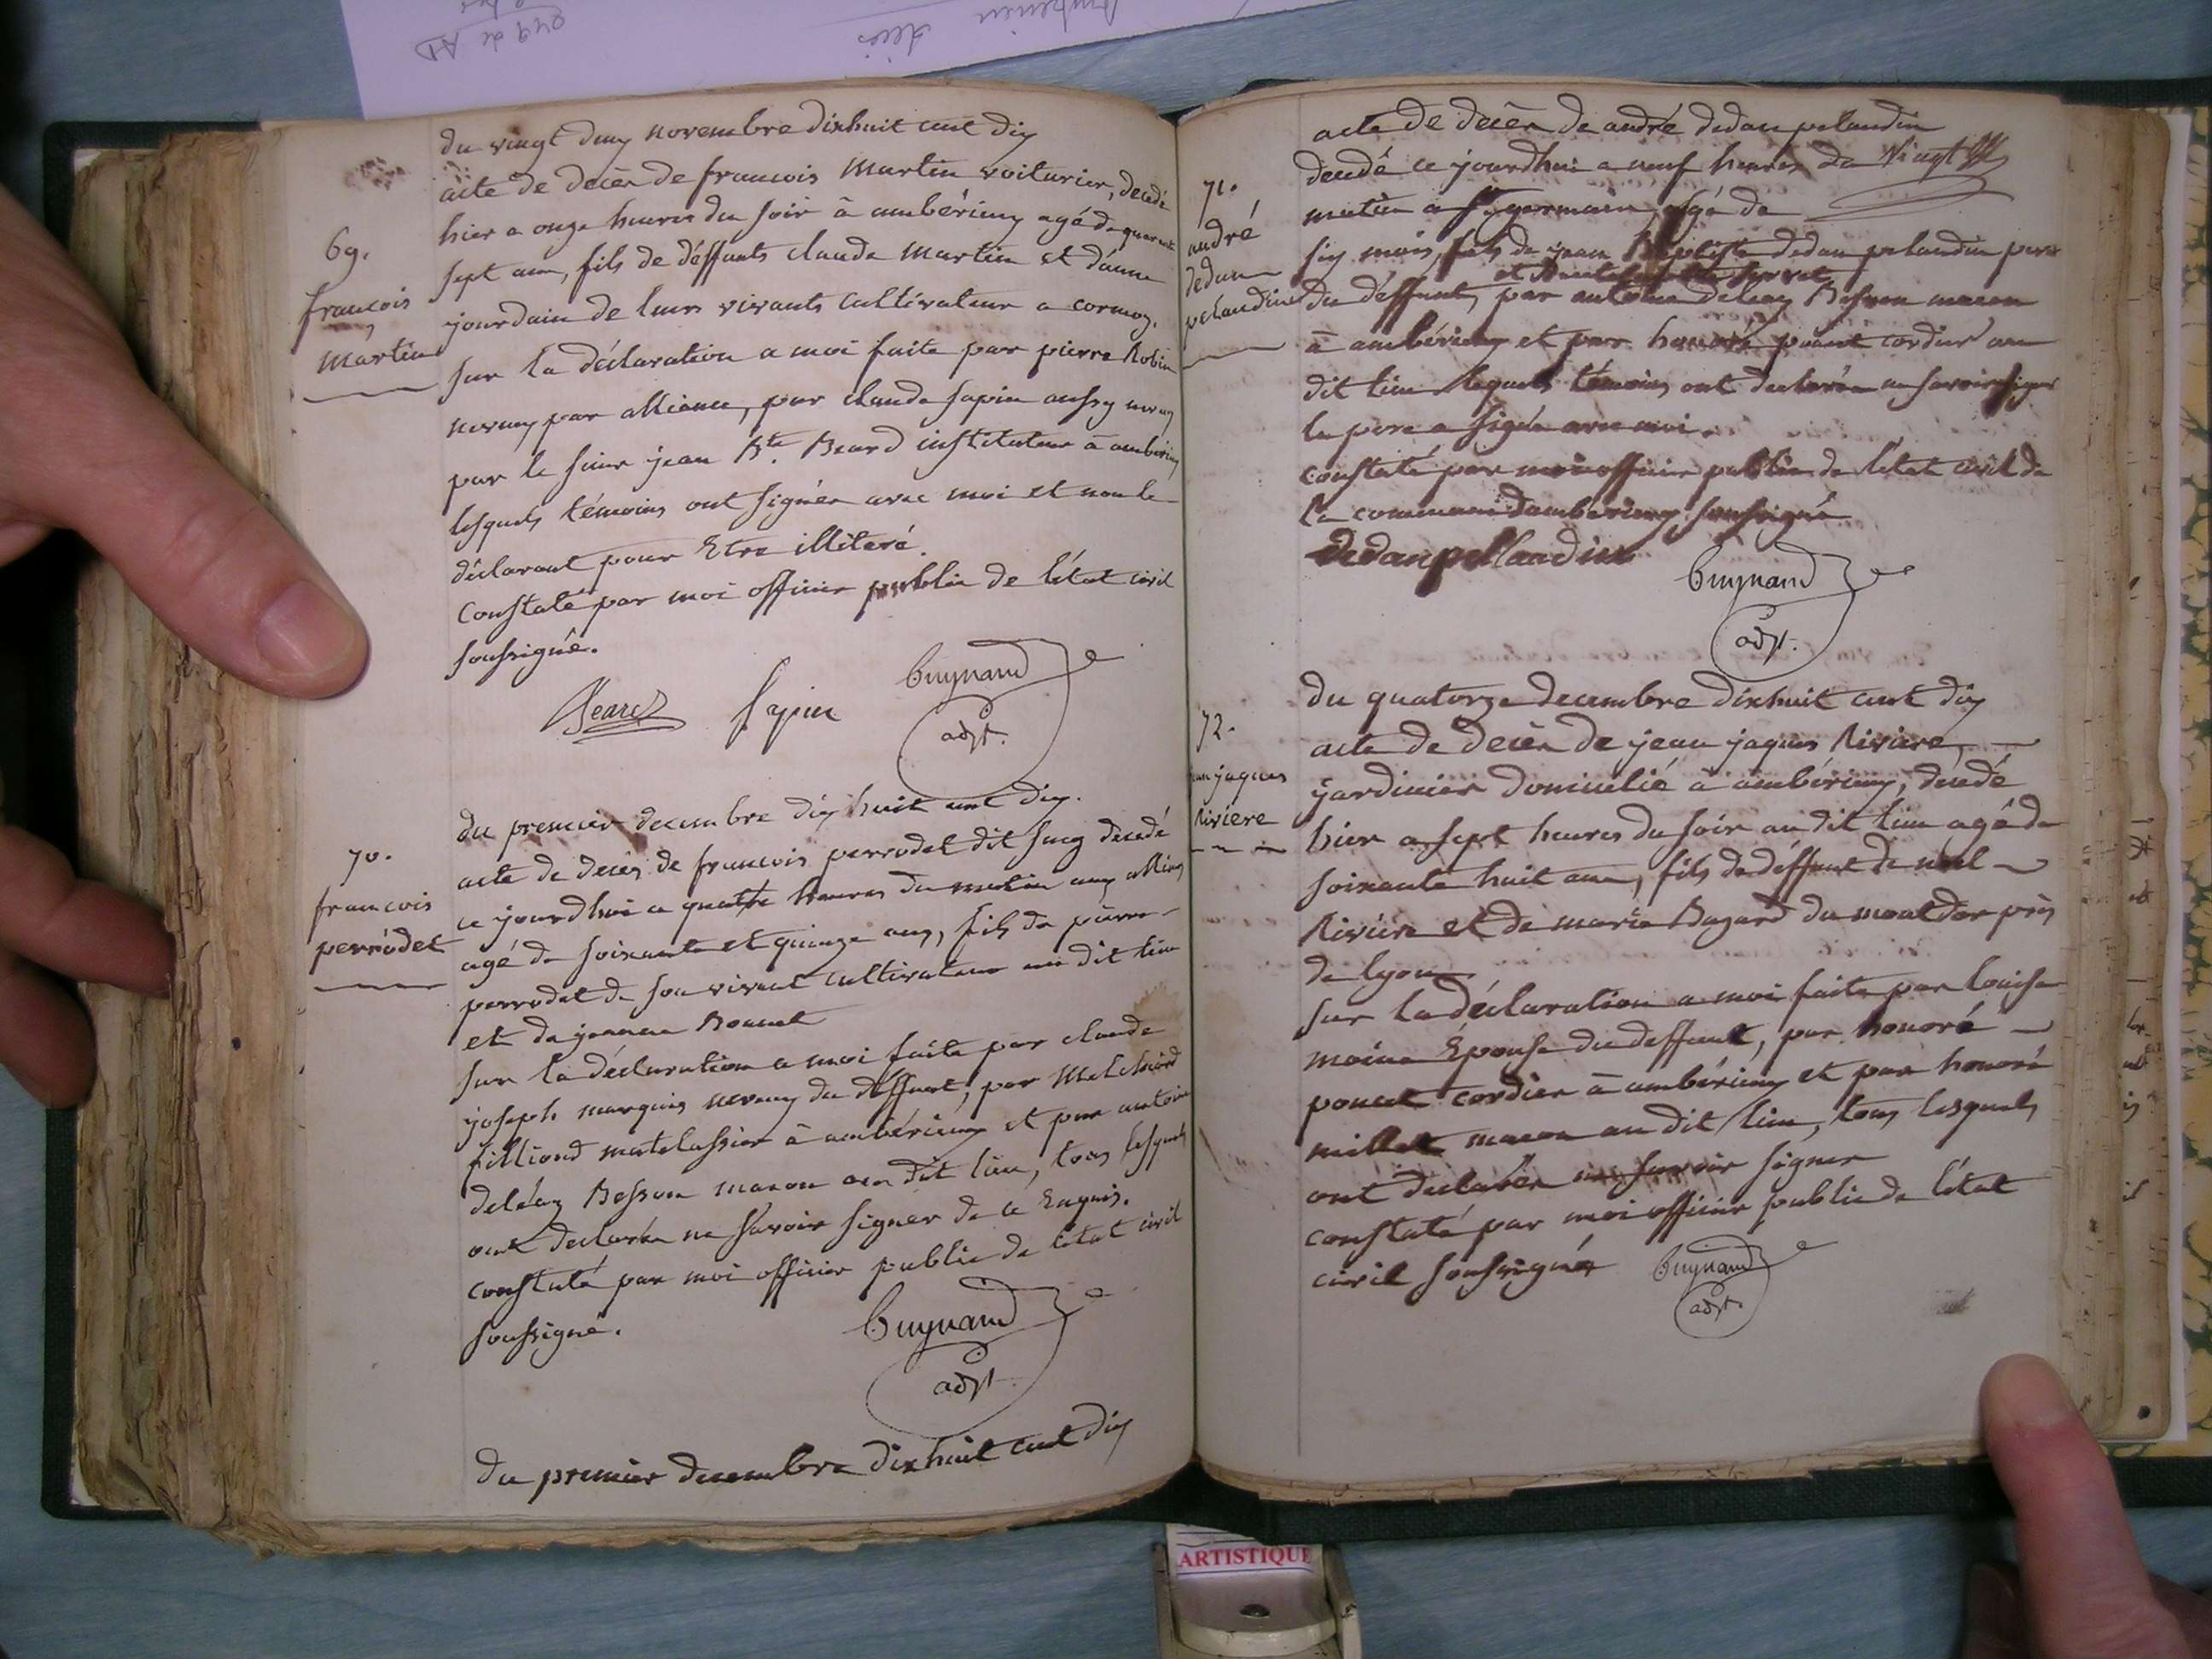 du vingt deux novembre dixhuit cent dix
69.
francois
martin
acte de decès de francois martin voiturier, decedé
hier a onze heures du soir à ambérieux agé de quarante
sept ans, fils de déffunts claude martin et d'anne
jourdain de leurs vivants cultivateur a cormoz.
sur la déclaration a moi faite par pierre Robin
neveux par alliance, par claude sapin aussy neveux
par le sieur jean Bte. Beard instituteur à ambérieux
lesquels témoins ont signés avec moi et non le
déclarant pour Etre illiteré.
constaté par moi officier public de l'état civil
soussigné.
Beard sapin Guynand
adjt.
du premier decembre dix huit cent dix.
70.
francois
perrodet
acte de decès de francois perrodet dit decedé
ce jourdhui a quatre heures du matin aux allimes
agé de soixante et quinze ans, fils de pierre
perrodet de son vivant cultivateur au dit lieu
et de jeanne Bonnet
sur la déclaration a moi faite par claude
joseph marquis neveux du déffunt, par Melchiord
filliond matelassier à ambérieux et par antoine
deléaz Besson macon au dit lieu, tous lesquels
ont declarés ne savoir signer de ce Enquis.
constaté par moi officier public de létat civil
soussigné.
Guynand
adjt.
du premier decembre dixhuit cent dix
acte de decès de andré dedan pelandin
71.
andré
dedan
pelandin
decedé ce jourdhui a neuf heures du vingt
matin a St germain, agé de
six mois, fils de jean Baptiste dedan pelandin pere
et
du déffunt, par antoine deleaz Besson macon
à ambérieux et par honoré poncet cordier au
dit lieu lequels témoins ont declarés ne savoir signer
le pere a signé avec moi.
constaté par moi officier public de létat civil de
la commune dambérieux soussigné
dedanpellandin Guynand
adjt.
du quatorze decembre dixhuit cent dix
72.
jean jaques
Riviere
acte de decès de jean jaques Riviere
jardinier domicilié à ambérieux, decedé
hier a sept heures du soir au dit lieu agé de
soixante huit ans, fils de déffunt de noel
Riviere et de marie Bazard du mont dor près
de lyon
sur la déclaration a moi faite par louise
moine Epouse du deffunt, par honoré
poncet cordier à ambérieux et par honoré
millet macon au dit lieu, tous lesquels
ont declarés ne savoir signer
constaté par moi officier public de létat
civil soussigné Guynand
adjt.
ARTISTIQUE